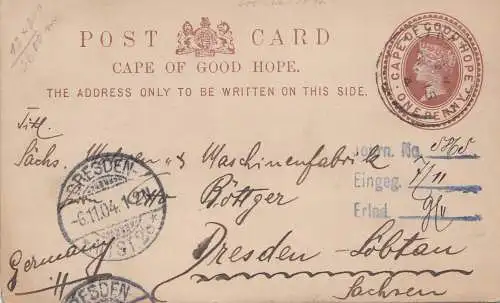 POST CARD
CAPE OF GOOD HOPE.
THE ADDRESS ONLY TO BE WRITTEN ON THIS SIDE.
CAPE OF GOOD HOPE
ONE PENNY
Titl.
Sächs. & Maschinenfabrik
Otto Böttger
Dresden-Löbtau
Sachsen
Germany
DRESDEN
-6.11.04.
Journ. No. 5865
Eingeg. 7/11
Erled.
DRESDEN